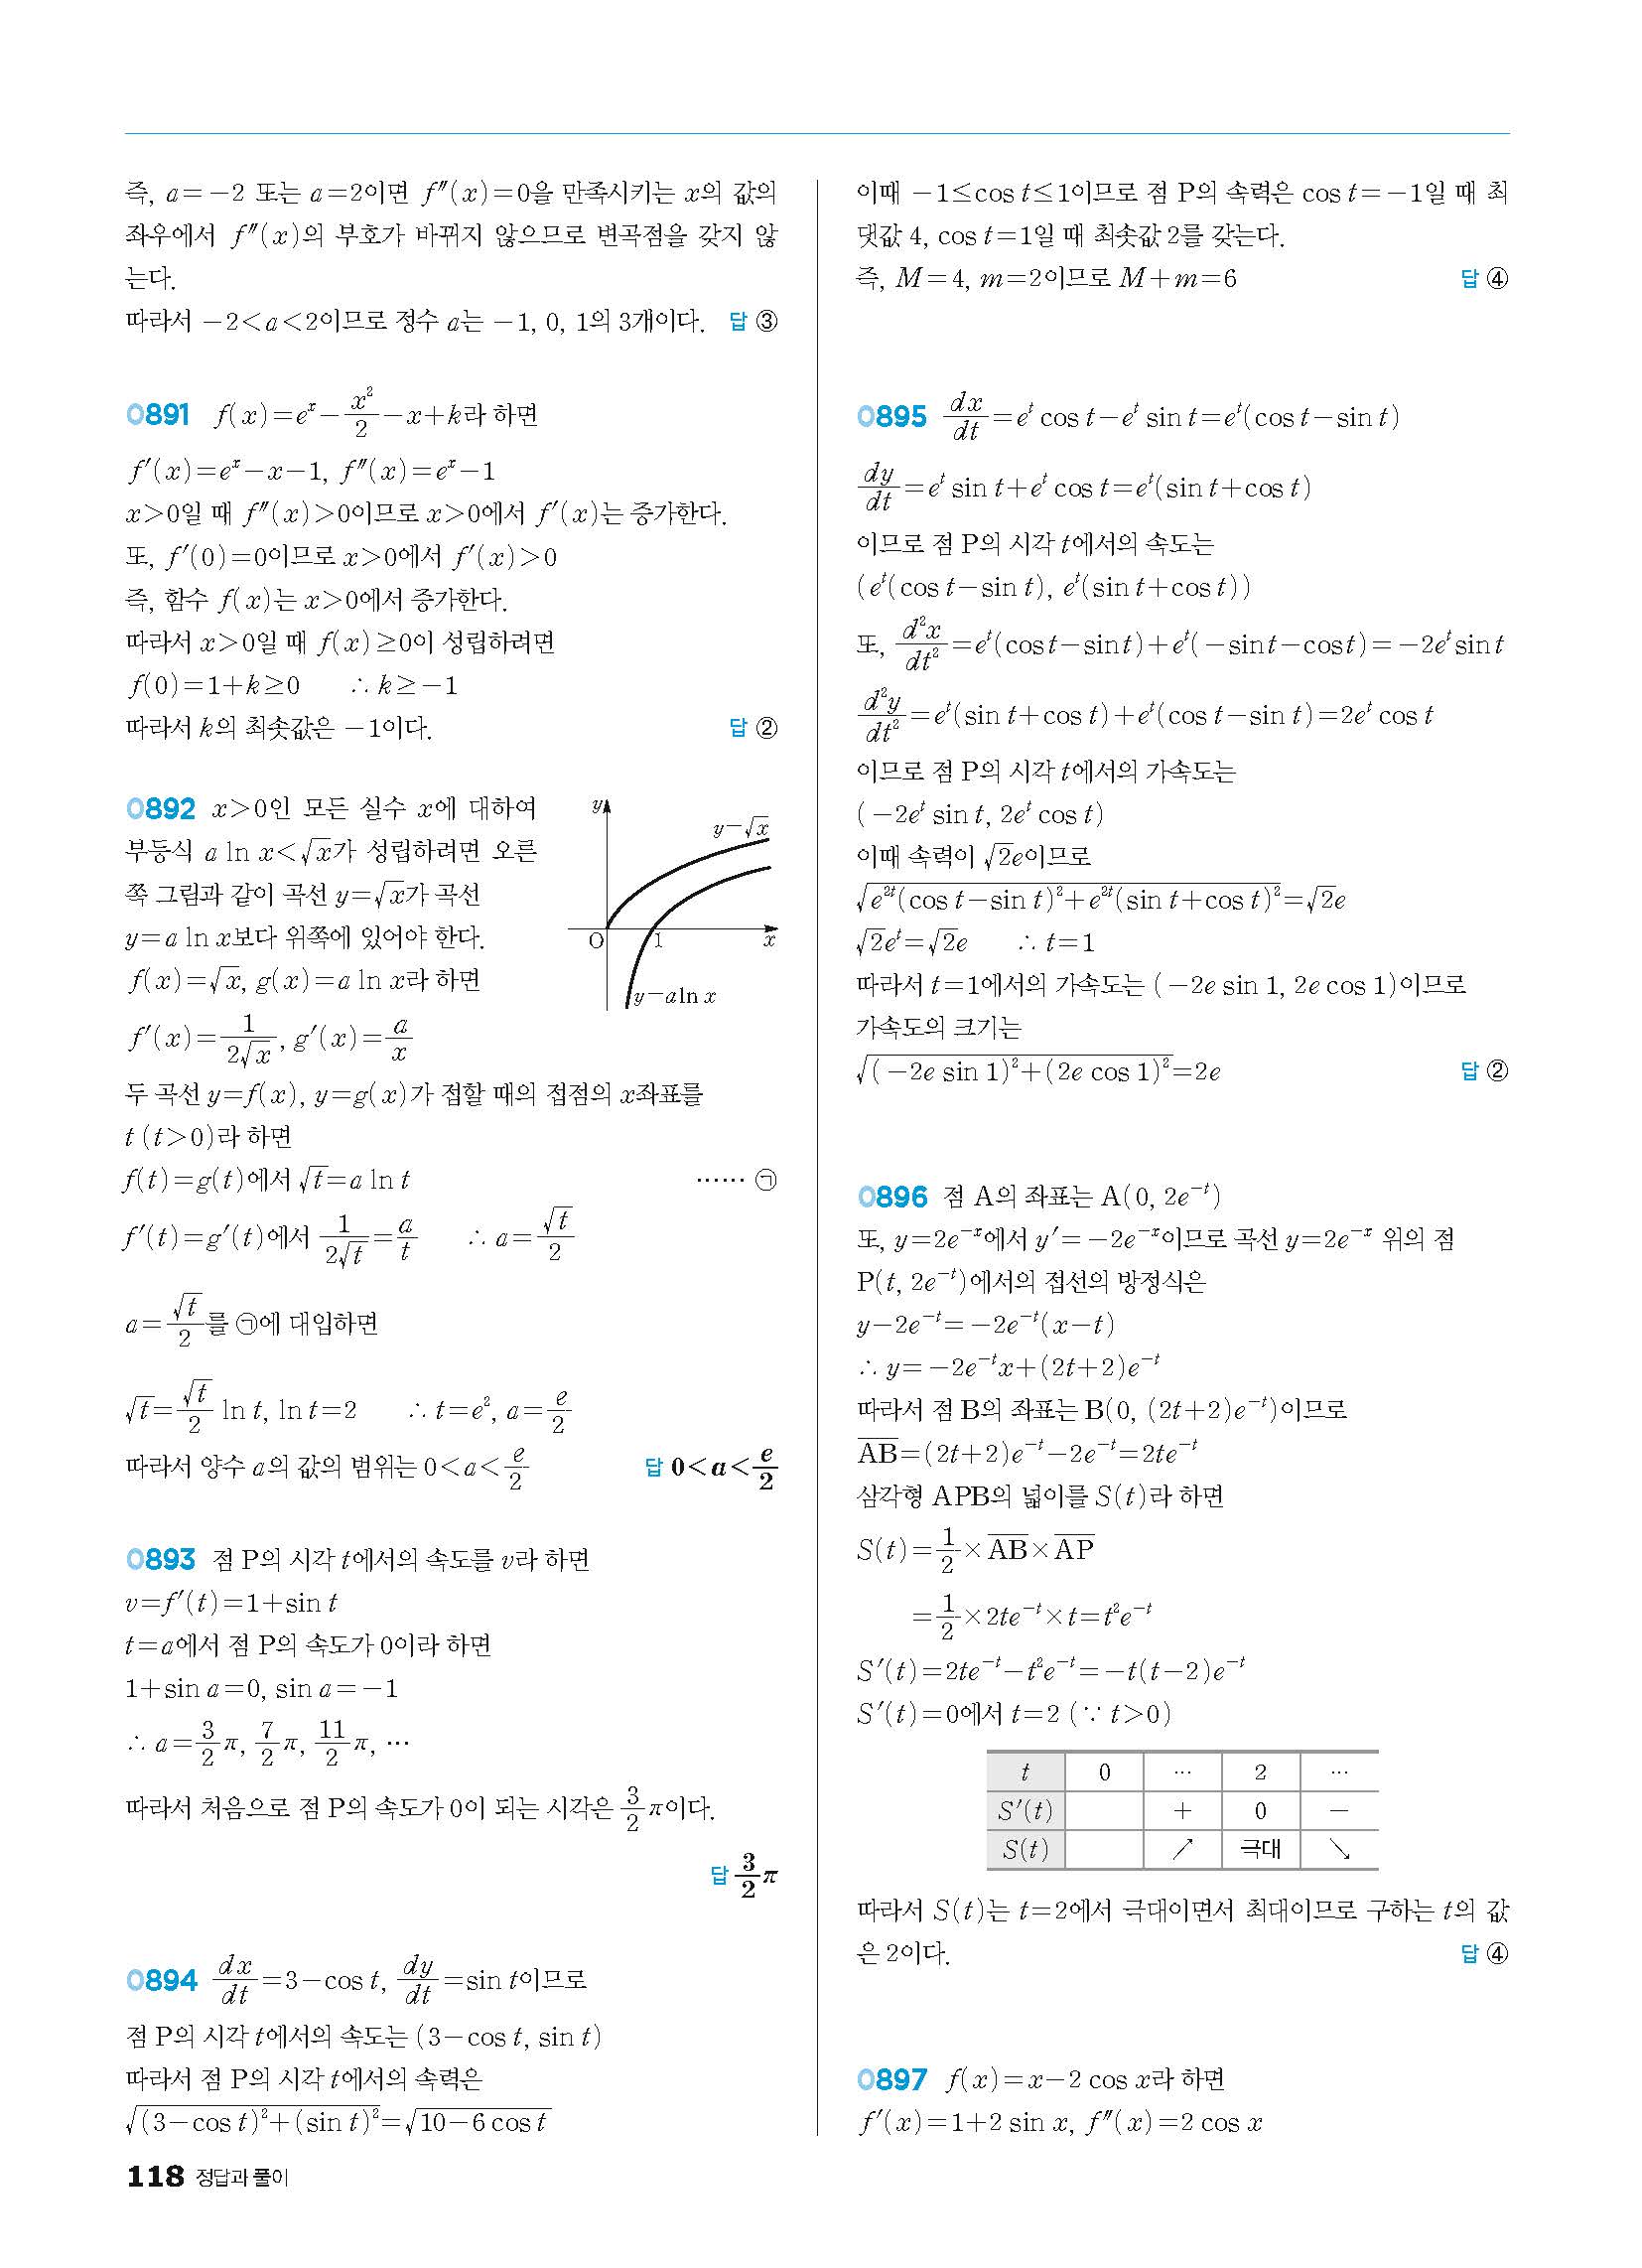 즉, a=-2 또는 a=2이면 f″(x)=0을 만족시키는 x의 값의
좌우에서 f″(x)의 부호가 바뀌지 않으므로 변곡점을 갖지 않
는다.
따라서 -2<a<2이므로 정수 a는 -1, 0, 1의 3개이다. 답 ③
0891 f(x)=e^x-x²/2-x+k라 하면
f′(x)=e^x-x-1, f″(x)=e^x-1
x>0일 때 f″(x)>0이므로 x>0에서 f′(x)는 증가한다.
또, f′(0)=0이므로 x>0에서 f′(x)>0
즉, 함수 f(x)는 x>0에서 증가한다.
따라서 x>0일 때 f(x)≥0이 성립하려면
f(0)=1+k≥0 ∴ k≥-1
따라서 k의 최솟값은 -1이다. 답 ②
0892 x>0인 모든 실수 x에 대하여
부등식 a ln x<√x가 성립하려면 오른
쪽 그림과 같이 곡선 y=√x가 곡선
y=a ln x보다 위쪽에 있어야 한다.
f(x)=√x, g(x)=a ln x라 하면
f′(x)=1/(2√x), g′(x)=a/x
y
y=√x
O 1 x
y=a ln x
두 곡선 y=f(x), y=g(x)가 접할 때의 접점의 x좌표를
t (t>0)라 하면
f(t)=g(t)에서 √t=a ln t …… ㉠
f′(t)=g′(t)에서 1/(2√t)=a/t ∴ a=√t/2
a=√t/2를 ㉠에 대입하면
√t=√t/2 ln t, ln t=2 ∴ t=e², a=e/2
따라서 양수 a의 값의 범위는 0<a<e/2 답 0<a<e/2
0893 점 P의 시각 t에서의 속도를 v라 하면
v=f′(t)=1+sin t
t=a에서 점 P의 속도가 0이라 하면
1+sin a=0, sin a=-1
∴ a=3/2π, 7/2π, 11/2π, …
따라서 처음으로 점 P의 속도가 0이 되는 시각은 3/2π이다.
답 3/2π
0894 dx/dt=3-cos t, dy/dt=sin t이므로
점 P의 시각 t에서의 속도는 (3-cos t, sin t)
따라서 점 P의 시각 t에서의 속력은
√((3-cos t)²+(sin t)²)=√(10-6 cos t)
이때 -1≤cos t≤1이므로 점 P의 속력은 cos t=-1일 때 최
댓값 4, cos t=1일 때 최솟값 2를 갖는다.
즉, M=4, m=2이므로 M+m=6 답 ④
0895 dx/dt=e^t cos t-e^t sin t=e^t(cos t-sin t)
dy/dt=e^t sin t+e^t cos t=e^t(sin t+cos t)
이므로 점 P의 시각 t에서의 속도는
(e^t(cos t-sin t), e^t(sin t+cos t))
또, d²x/dt²=e^t(cos t-sin t)+e^t(-sin t-cos t)=-2e^t sin t
d²y/dt²=e^t(sin t+cos t)+e^t(cos t-sin t)=2e^t cos t
이므로 점 P의 시각 t에서의 가속도는
(-2e^t sin t, 2e^t cos t)
이때 속력이 √2e이므로
√(e^2t(cos t-sin t)²+e^2t(sin t+cos t)²)=√2e
√2e^t=√2e ∴ t=1
따라서 t=1에서의 가속도는 (-2e sin 1, 2e cos 1)이므로
가속도의 크기는
√((-2e sin 1)²+(2e cos 1)²)=2e 답 ②
0896 점 A의 좌표는 A(0, 2e^-t)
또, y=2e^-x에서 y′=-2e^-x이므로 곡선 y=2e^-x 위의 점
P(t, 2e^-t)에서의 접선의 방정식은
y-2e^-t=-2e^-t(x-t)
∴ y=-2e^-t x+(2t+2)e^-t
따라서 점 B의 좌표는 B(0, (2t+2)e^-t)이므로
A̅B̅=(2t+2)e^-t-2e^-t=2te^-t
삼각형 APB의 넓이를 S(t)라 하면
S(t)=1/2×A̅B̅×A̅P̅
=1/2×2te^-t×t=t²e^-t
S′(t)=2te^-t-t²e^-t=-t(t-2)e^-t
S′(t)=0에서 t=2 (∵ t>0)
t 0 … 2 …
S′(t) + 0 -
S(t) ↗ 극대 ↘
따라서 S(t)는 t=2에서 극대이면서 최대이므로 구하는 t의 값
은 2이다. 답 ④
0897 f(x)=x-2 cos x라 하면
f′(x)=1+2 sin x, f″(x)=2 cos x
118 정답과 풀이